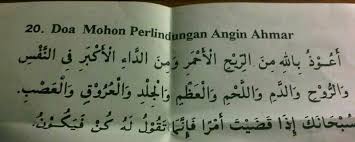 20. Doa Mohon Perlindungan Angin Ahmar
أَعُوْذُ بِاللهِ مِنَ الرِّيْحِ الْأَحْمَرِ وَمِنَ الدَّاءِ الْأَكْبَرِ فِى النَّفْسِ
وَالرُّوْحِ وَالدَّمِ وَاللَّحْمِ وَالْعَظْمِ وَالْجِلْدِ وَالْعُرُوْقِ وَالْعَصَبِ.
سُبْحَانَكَ إِذَا قَضَيْتَ أَمْرًا فَإِنَّمَا تَقُوْلُ لَهُ كُنْ فَيَكُوْنُ.